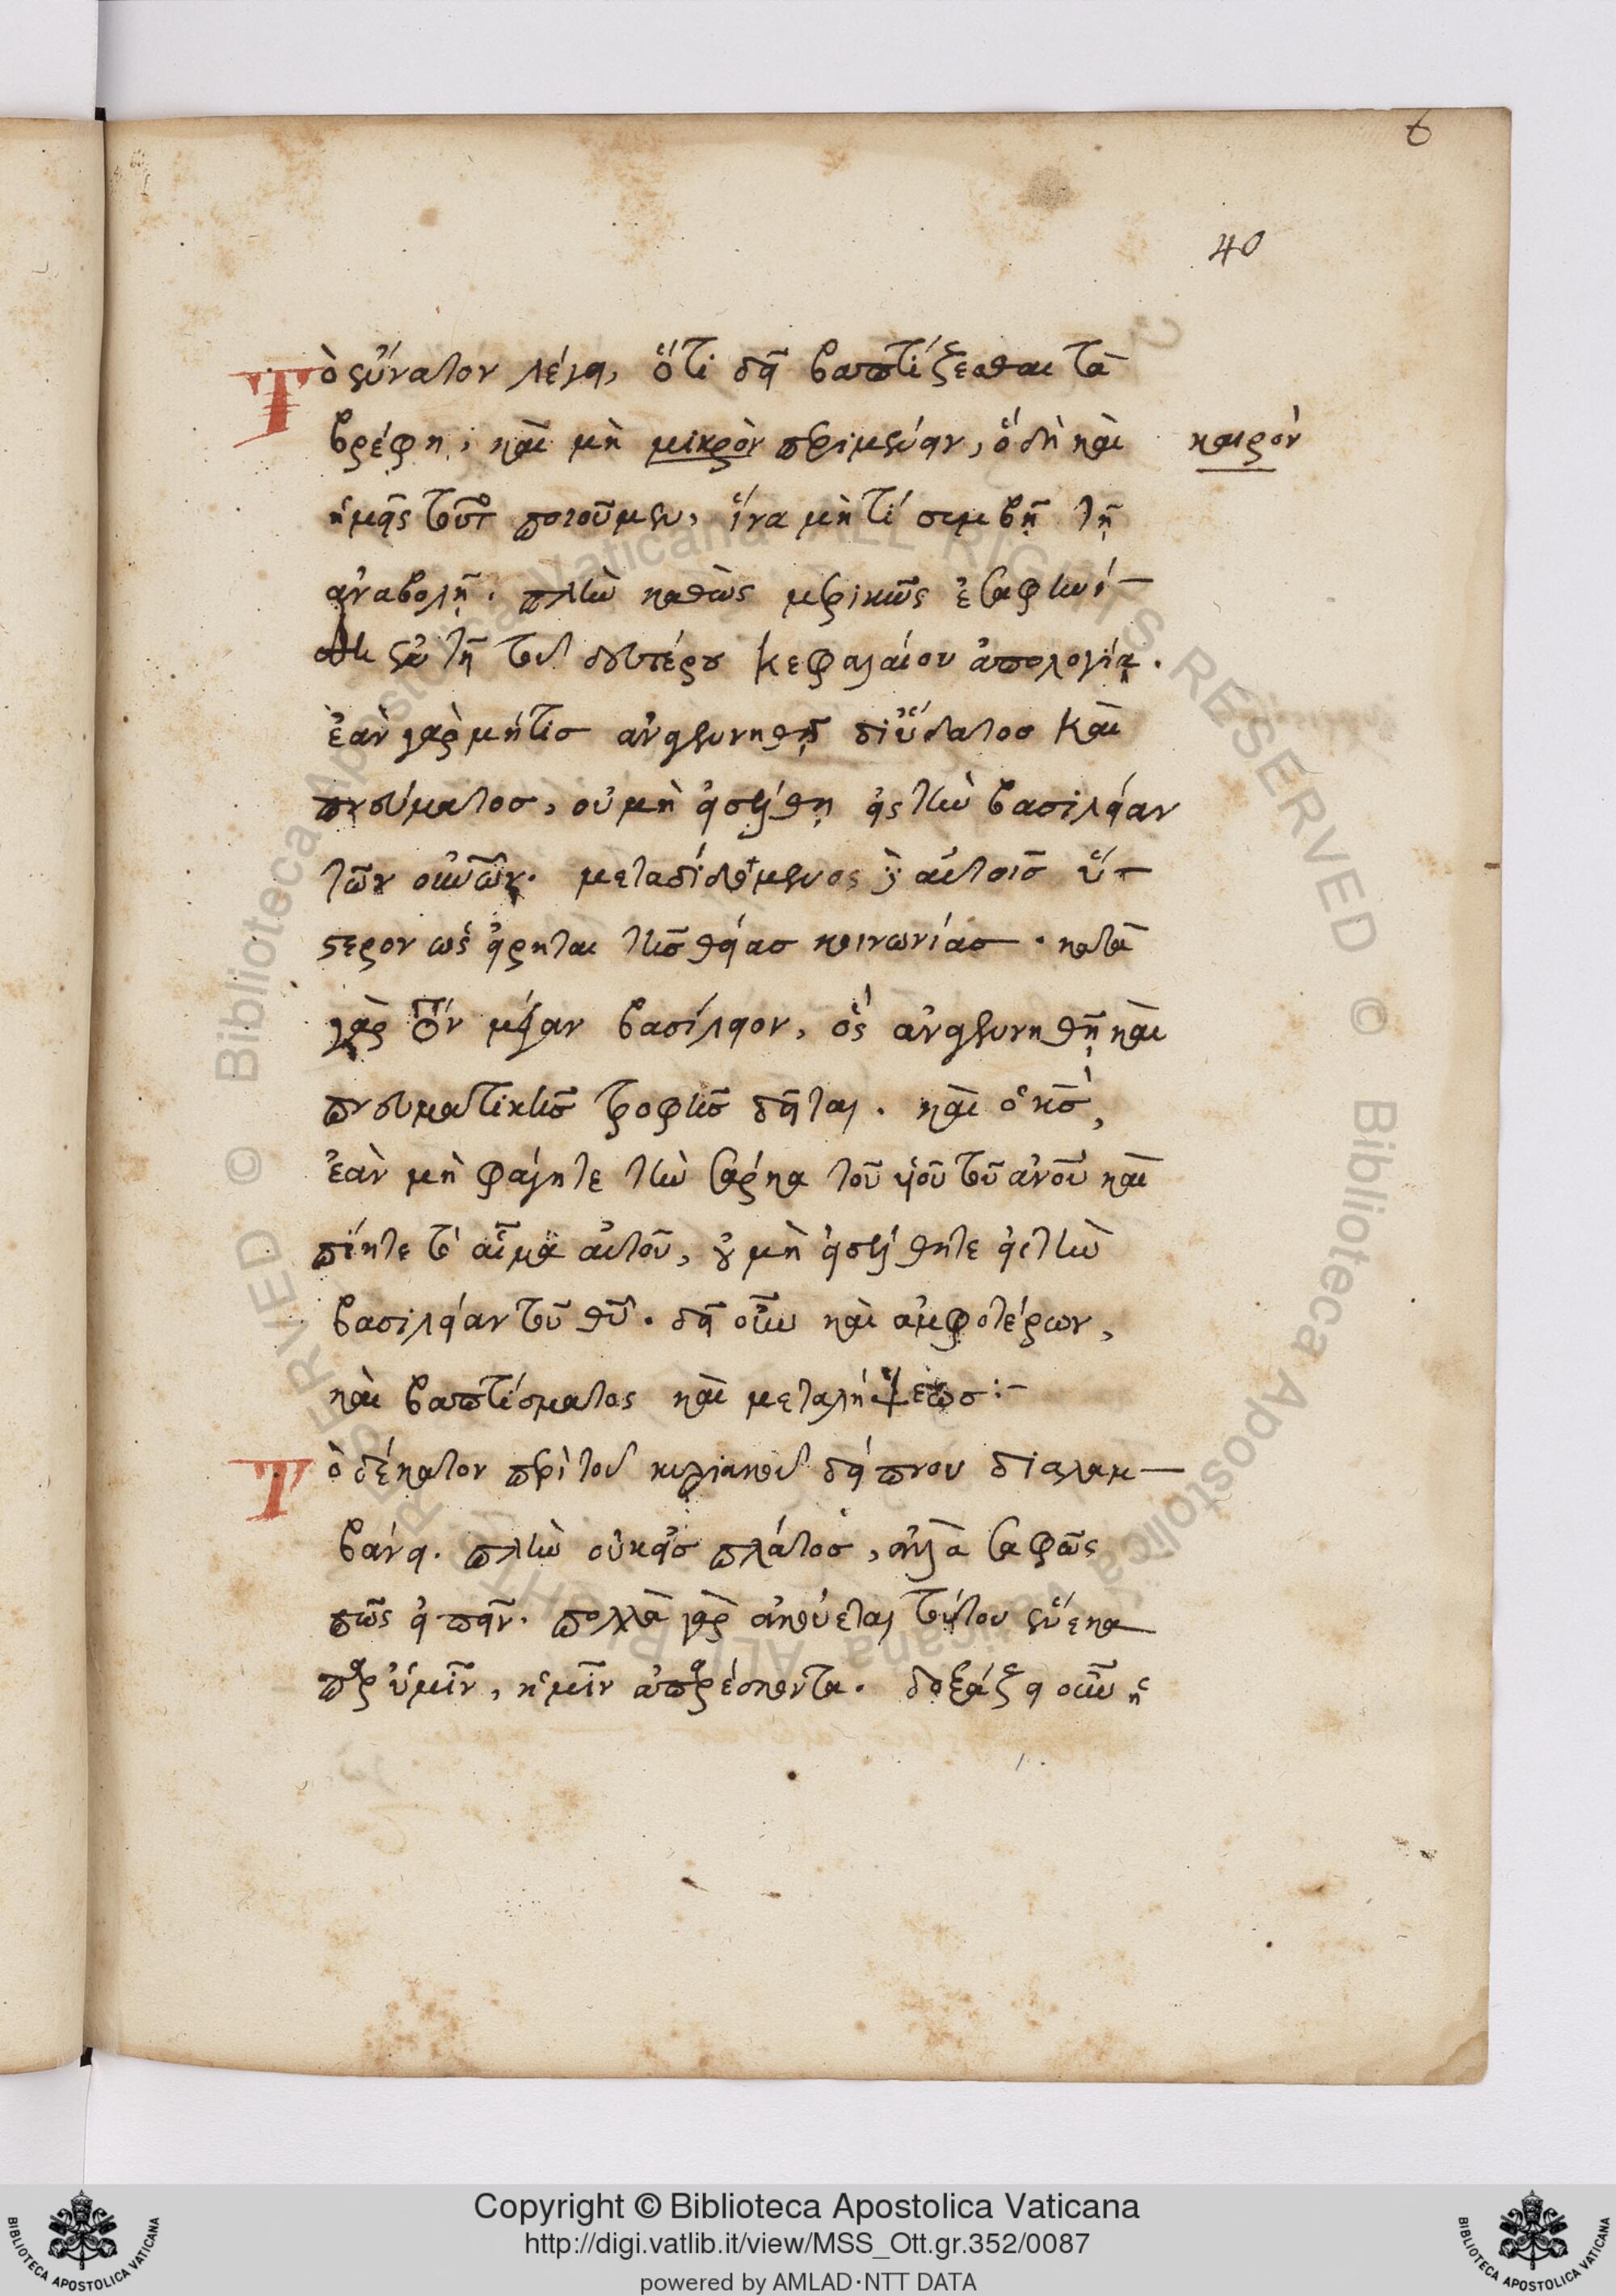 6
40
Τὸ ἔννατον λέγει, ὅτι δεῖ βαπτίζεσθαι τὰ
βρέφη, καὶ μὴ μικρὸν περιμένειν, ὃ δὴ καὶ
καιρόν
ἡμεῖς τοῦτο ποιοῦμεν, ἵνα μὴ τί συμβῇ τῇ
ἀναβολῇ. πλὴν καθὼς μερικῶς ἐσαφηνί-
σθη ἐν τῇ τοῦ δευτέρου κεφαλαίου ἀπολογίᾳ.
ἐὰν γὰρ μήτις ἀναγεννηθῇ δι' ὕδατος καὶ
πνεύματος, οὐ μὴ εἰσέλθῃ εἰς τὴν βασιλείαν
τῶν οὐνῶν. μεταδίδομεν αὐτοῖς ὕ-
στερον ὡς εἴρηται τῆς θείας κοινωνίας. κατὰ
γὰρ τὸν μέγαν βασίλειον, ὃς ἀναγεννηθῇ καὶ
πνευματικῆς τροφῆς δεῖται. καὶ ὁ κς,
ἐὰν μὴ φάγητε τὴν σάρκα τοῦ υἱοῦ τοῦ ἀνοῦ καὶ
πίητε τὸ αἷμα αὐτοῦ, οὐ μὴ εἰσέλθητε εἰς τὴν
βασιλείαν τοῦ θῦ. δεῖ οὖν καὶ ἀμφοτέρων,
καὶ βαπτίσματος καὶ μεταλήψεως:-
Τὸ δέκατον περὶ τοῦ κυριακοῦ δείπνου διαλαμ-
βάνει. πλὴν οὐκ εἰς πλάτος, ἀλλὰ σαφῶς
πῶς εἰπεῖν. πολλὰ γὰρ ἀκούεται τούτου ἕνεκα
παρ' ὑμῖν, ἡμῖν ἀπαρέσκοντα. δοξάζει οὖν ἡ
Copyright © Biblioteca Apostolica Vaticana
http://digi.vatlib.it/view/MSS_Ott.gr.352/0087
powered by AMLAD·NTT DATA